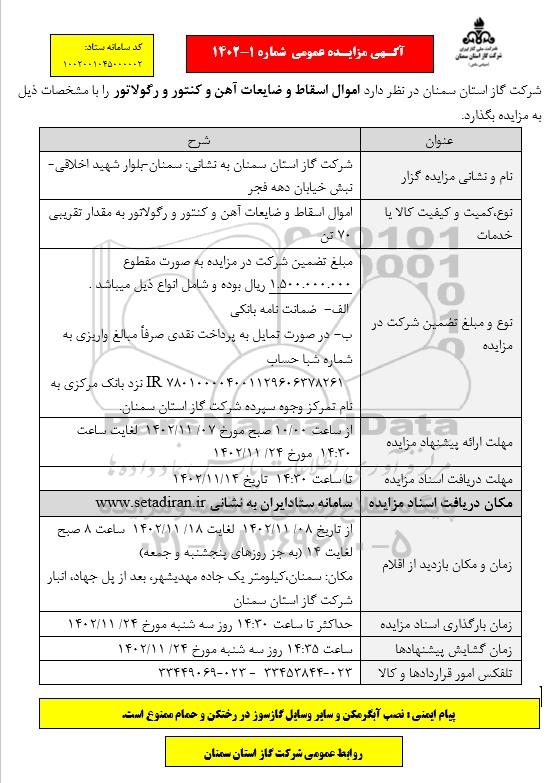 شرکت ملی گاز ایران
شرکت گاز استان سمنان
(سهامی خاص)
آگـهی مزایـده عمومی شماره ۱-۱۴۰۲
کد سامانه ستاد:
۱۰۰۲۰۰۱۰۴۵۰۰۰۰۰۲
شرکت گاز استان سمنان در نظر دارد اموال اسقاط و ضایعات آهن و کنتور و رگولاتور را با مشخصات ذیل
به مزایده بگذارد.
عنوان
شرح
نام و نشانی مزایده گزار
شرکت گاز استان سمنان به نشانی: سمنان-بلوار شهید اخلاقی-
نبش خیابان دهه فجر
نوع،کمیت و کیفیت کالا یا
خدمات
اموال اسقاط و ضایعات آهن و کنتور و رگولاتور به مقدار تقریبی
۷۰ تن
نوع و مبلغ تضمین شرکت در
مزایده
مبلغ تضمین شرکت در مزایده به صورت مقطوع
۱.۵۰۰.۰۰۰.۰۰۰ ریال بوده و شامل انواع ذیل میباشد .
الف- ضمانت نامه بانکی
ب- در صورت تمایل به پرداخت نقدی صرفاً مبالغ واریزی به
شماره شبا حساب
IR ۷۸۰۱۰۰۰۰۴۰۰۱۱۲۹۶۰۶۳۷۸۲۶۱ نزد بانک مرکزی به
نام تمرکز وجوه سپرده شرکت گاز استان سمنان.
مهلت ارائه پیشنهاد مزایده
از ساعت ۱۰/۰۰ صبح مورخ ۰۷/ ۱۴۰۲/۱۱ لغایت ساعت
۱۴:۳۰ مورخ ۲۴/ ۱۴۰۲/۱۱
مهلت دریافت اسناد مزایده
تا ساعت ۱۴:۳۰ تاریخ ۱۴۰۲/۱۱/۱۴
مکان دریافت اسناد مزایده
سامانه ستادایران به نشانی www.setadiran.ir
زمان و مکان بازدید از اقلام
از تاریخ ۰۸/ ۱۴۰۲/۱۱ لغایت ۱۸/ ۱۴۰۲/۱۱ ساعت ۸ صبح
لغایت ۱۴ (به جز روزهای پنجشنبه و جمعه)
مکان: سمنان،کیلومتر یک جاده مهدیشهر، بعد از پل جهاد، انبار
شرکت گاز استان سمنان
زمان بارگذاری اسناد مزایده
حداکثر تا ساعت ۱۴:۳۰ روز سه شنبه مورخ ۲۴/ ۱۴۰۲/۱۱
زمان گشایش پیشنهادها
ساعت ۱۴:۳۵ روز سه شنبه مورخ ۲۴/ ۱۴۰۲/۱۱
تلفکس امور قراردادها و کالا
۰۲۳-۳۳۴۵۳۸۴۴ - ۰۲۳-۳۳۴۴۹۰۶۹
پیام ایمنی : نصب آبگرمکن و سایر وسایل گازسوز در رختکن و حمام ممنوع است.
روابط عمومی شرکت گاز استان سمنان